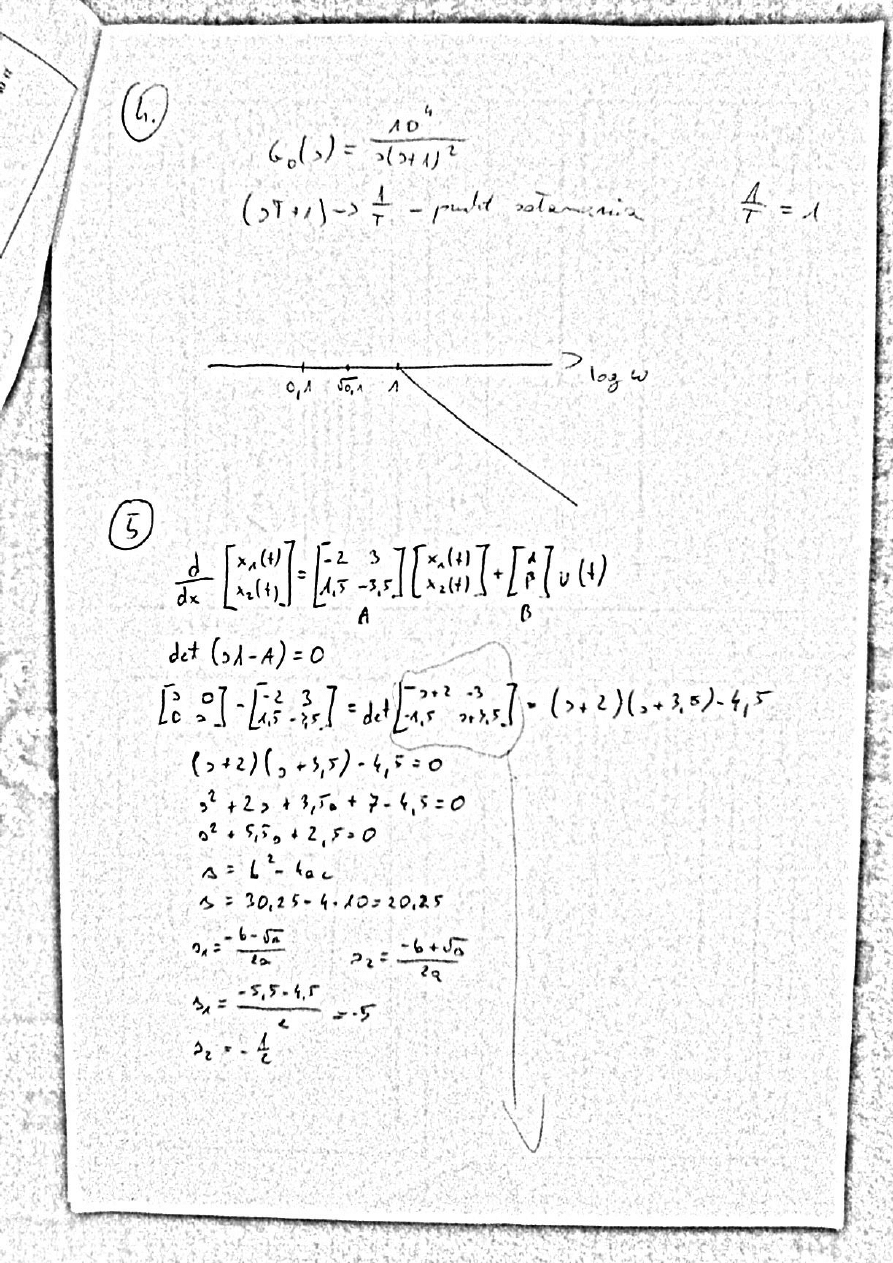 4.
G₀(s) = 10⁴ / s(s+1)²
(sT+1) -> 1/T - punkt załamania 1/T = 1
0,1 √0,1 1 log ω
5
d/dx [x₁(t) x₂(t)] = [-2 3 1,5 -3,5] [x₁(t) x₂(t)] + [1 β] u(t)
A B
det (s1-A) = 0
[s 0 0 s] - [-2 3 1,5 -3,5] = det [s+2 -3 -1,5 s+3,5] = (s+2)(s+3,5) - 4,5
(s+2)(s+3,5) - 4,5 = 0
s² + 2s + 3,5s + 7 - 4,5 = 0
s² + 5,5s + 2,5 = 0
Δ = b² - 4ac
Δ = 30,25 - 4·10 = 20,25
s₁ = -b-√Δ / 2a s₂ = -b+√Δ / 2a
s₁ = -5,5-4,5 / 2 = -5
s₂ = - 1/2